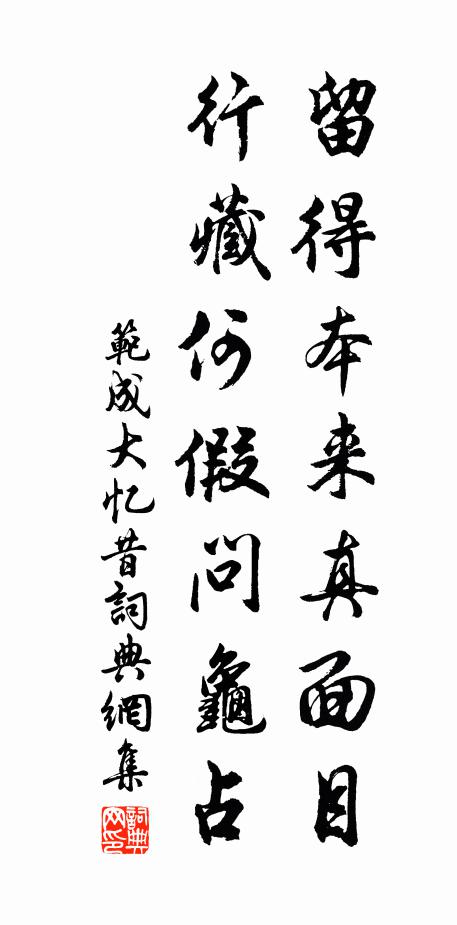 留得本来真面目
行藏何假問龜占
範成大忆昔詞典網集
詞典网印